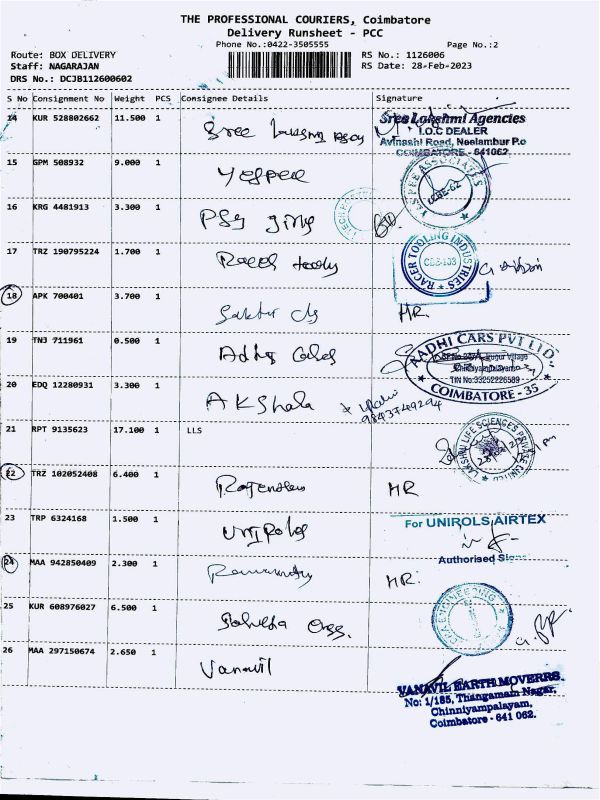 THE PROFESSIONAL COURIERS, Coimbatore
Delivery Runsheet - PCC
Phone No.:0422-3505555 Page No.:2
Route: BOX DELIVERY RS No.: 1126006
Staff: NAGARAJAN RS Date: 28-Feb-2023
DRS No.: DCJB112600602
S No Consignment No Weight PCS Consignee Details Signature
14 KUR 528802662 11.500 1 Sree Sree Lakshmi Agencies
I.O.C DEALER
Avinashi Road, Neelambur P.o
COIMBATORE - 641062
15 GPM 508932 9.000 1 Yespee YES PEE ASSOCIATES
CBE-62
16 KRG 4481913 3.300 1 PSG
17 TRZ 190795224 1.700 1 RACER TOOLING INDUSTRIES
18 APK 700401 3.700 1 HR.
19 TNJ 711961 0.500 1 RADHI CARS PVT LTD
TIN No:33252226589
COIMBATORE - 35
20 EDQ 12280931 3.300 1 AKShala
9843749294
21 RPT 9135623 17.100 1 LLS LAKSHMI LIFE SCIENCES PRIVATE LIMITED
22 TRZ 102052408 6.400 1 HR
23 TRP 6324168 1.500 1 For UNIROLS AIRTEX
24 MAA 942850409 2.300 1 HR.
Authorised
25 KUR 608976027 6.500 1 ENGINEERING
26 MAA 297150674 2.650 1 Vanavil
VANAVIL EARTH MOVERRS.
No: 1/185, Thangamam Nagar,
Chinniyampalayam,
Coimbatore - 641 062.